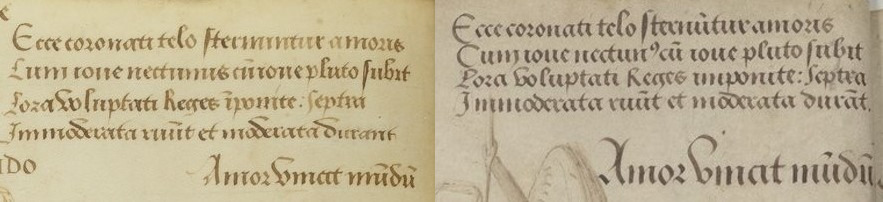 Ecce coronati telo sternuntur amoris
Cum ioue nectunus cū ioue pluto subit
Lora voluptati Reges īponite: septra
Immoderata ruūt et moderata durant
IDO
Amor vincit mūdū
Ecce coronati telo sternūtur amoris
Cum ioue nectunꝰ cū ioue pluto subit
Lora voluptati Reges imponite: septra
Immoderata ruūt et moderata durāt.
Amor vincit mūdū